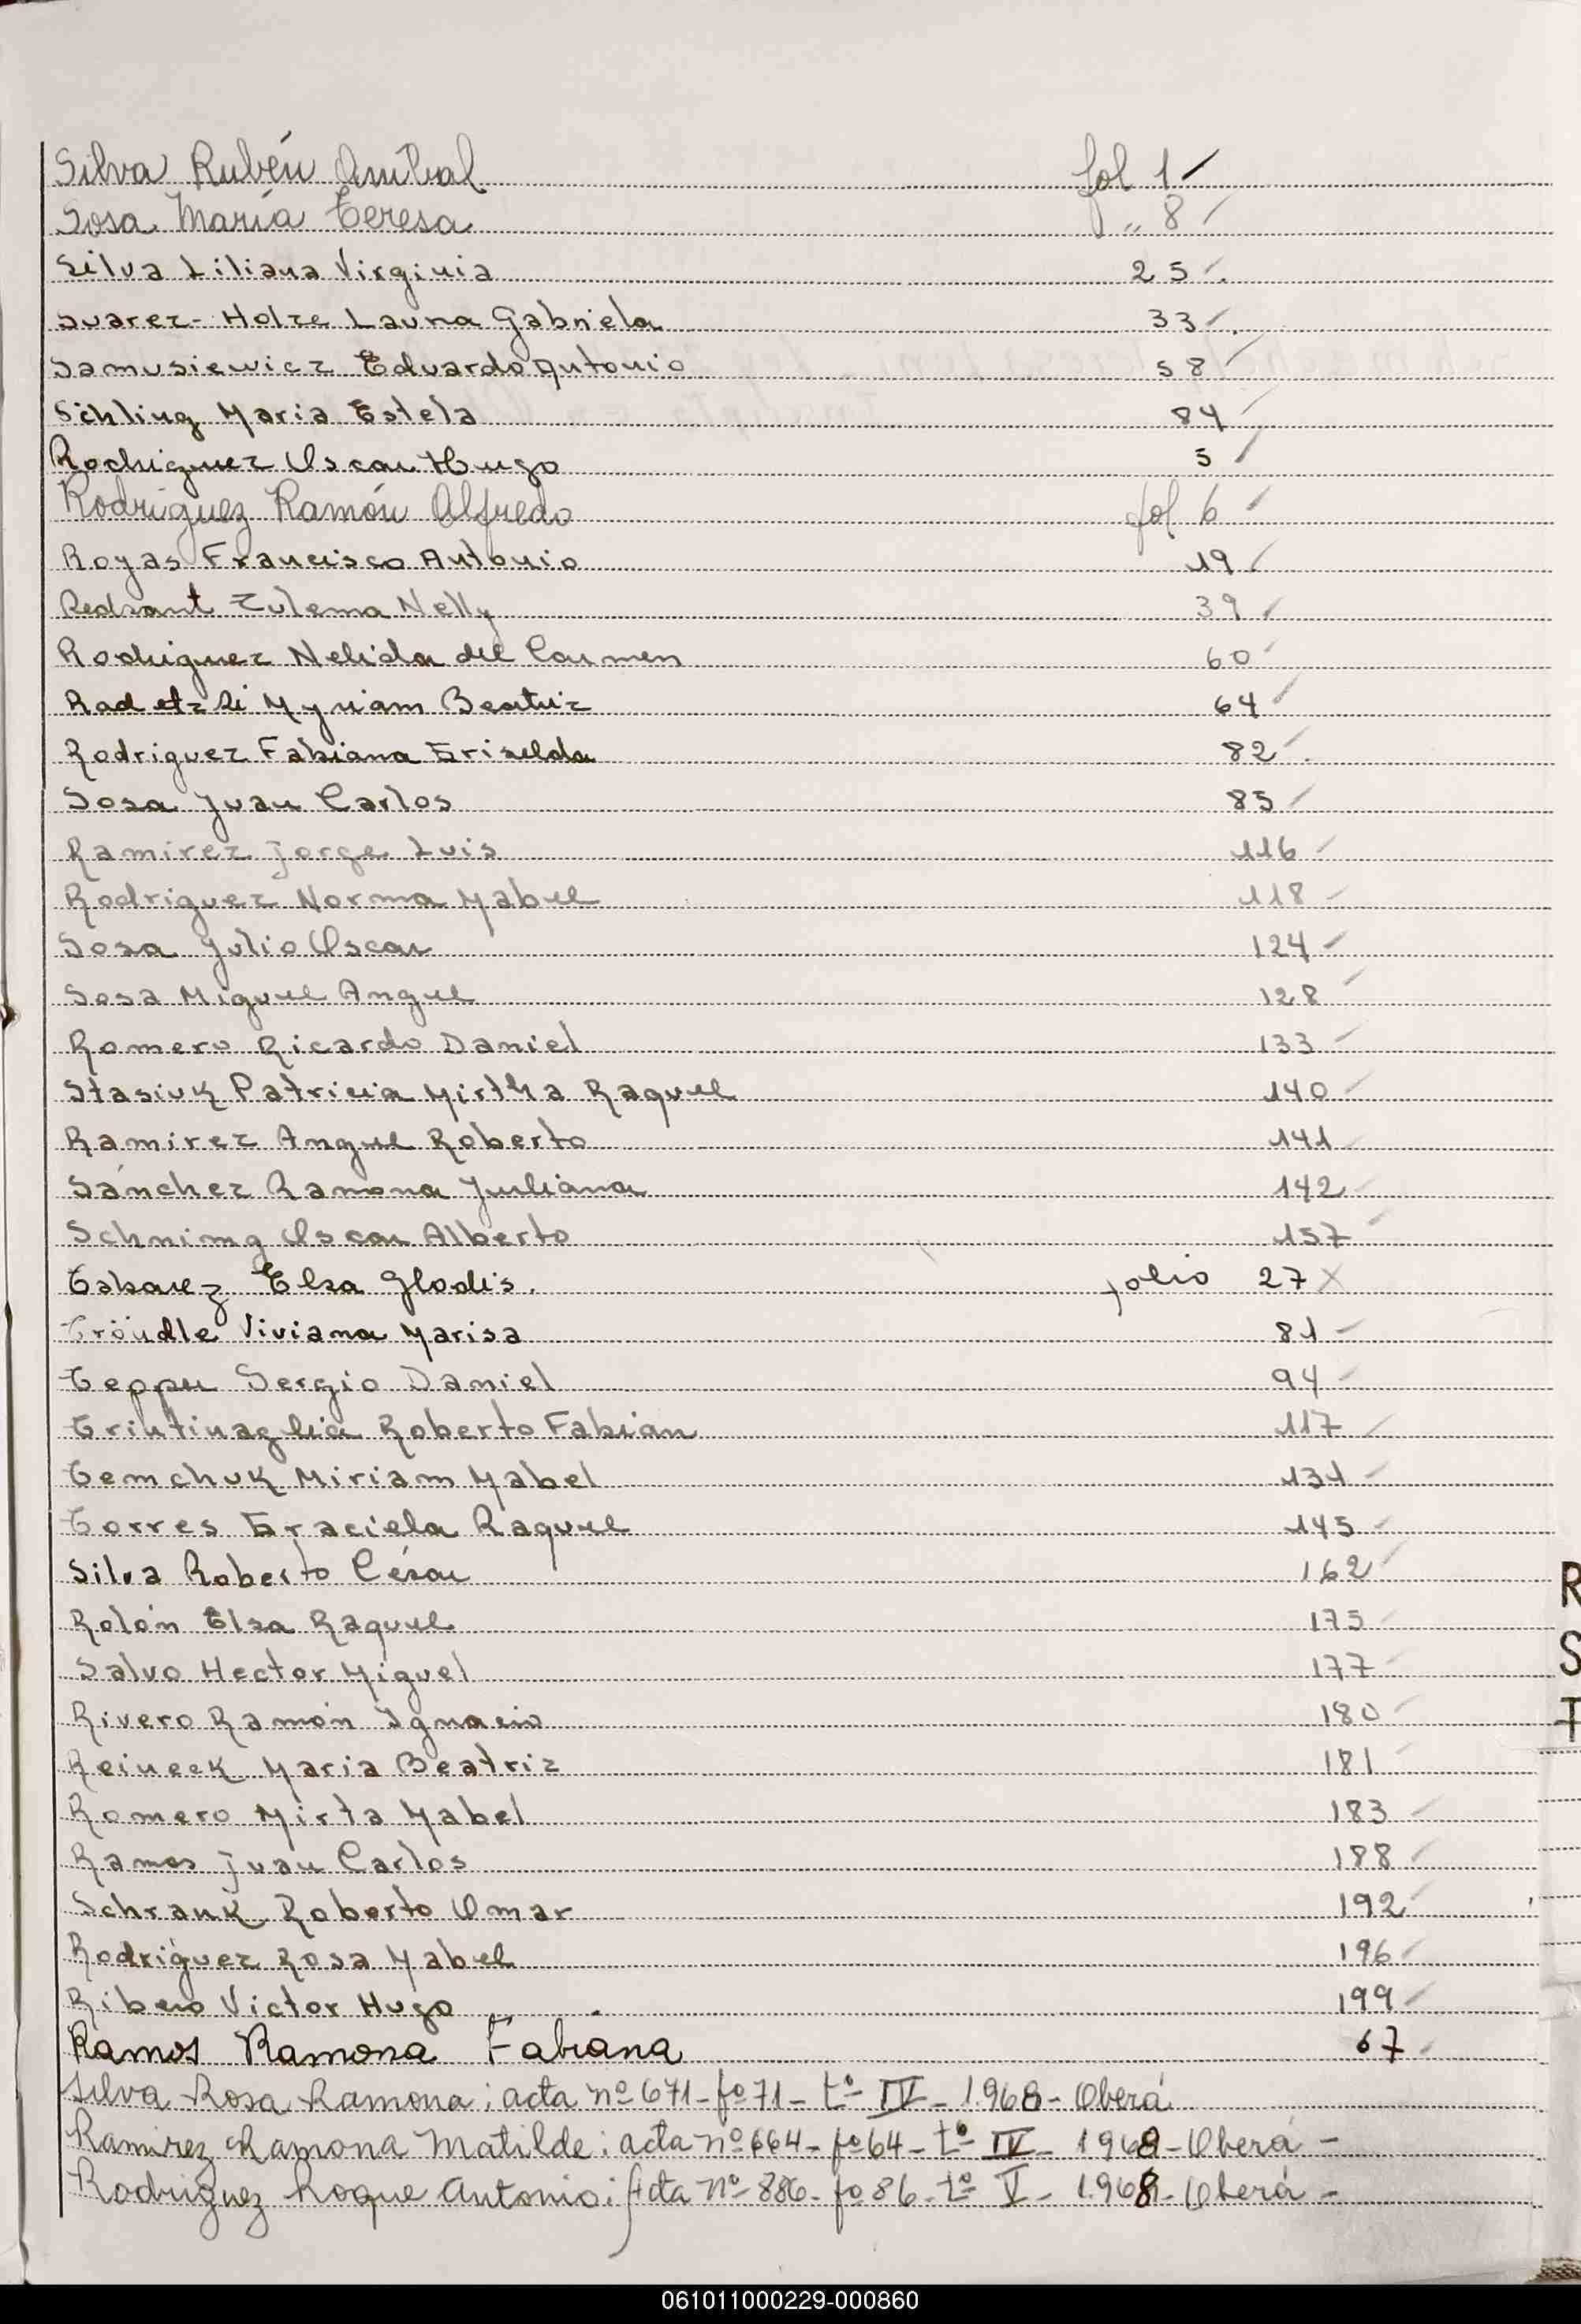 Silva Rubén Anibal fol 1
Sosa María Teresa " 8
Silva Liliana Virginia 25
Suarez-Holze Laura Gabriela 33
Samusiewicz Eduardo Antonio 58
Schling Maria Estela 84
Rodriguez Oscar Hugo 5
Rodríguez Ramón Alfredo fol 6
Royas Francisco Antonio 19
Zulema Nelly 39
Rodriguez Nelida del Carmen 60
Radetzki Myriam Beatriz 64
Rodriguez Fabiana Griselda 82
Sosa Juan Carlos 85
Ramirez Jorge Luis 116
Rodriguez Norma Mabel 118
Sosa Julio Oscar 124
Sosa Miguel Angel 128
Romero Ricardo Daniel 133
Stasiuk Patricia Mirtha Raquel 140
Ramirez Angel Roberto 141
Sánchez Ramona Juliana 142
Schnimg Oscar Alberto 157
Elsa Glodis. folio 27 X
Tröndle Viviana Marisa 81
Tepper Sergio Daniel 94
Trintinaglia Roberto Fabian 117
Temchuk Miriam Mabel 131
Torres Graciela Raquel 145
Silva Roberto César 162
Rolón Elsa Raquel 175
Salvo Hector Miguel 177
Rivero Ramón Ignacio 180
Reineck Maria Beatriz 181
Romero Mirta Mabel 183
Ramos Juan Carlos 188
Schrank Roberto Omar 192
Rodriguez Rosa Mabel 196
Ribero Victor Hugo 199
Ramos Ramona Fabiana 67
Silva Rosa Ramona: acta nº 671-fº 71-tº IV-1968-Oberá
Ramirez Ramona Matilde: acta nº 664-fº 64-tº IV-1968-Oberá-
Rodriguez Roque Antonio: Acta nº 886-fº 86-tº V-1968-Oberá-
R
S
T
061011000229-000860